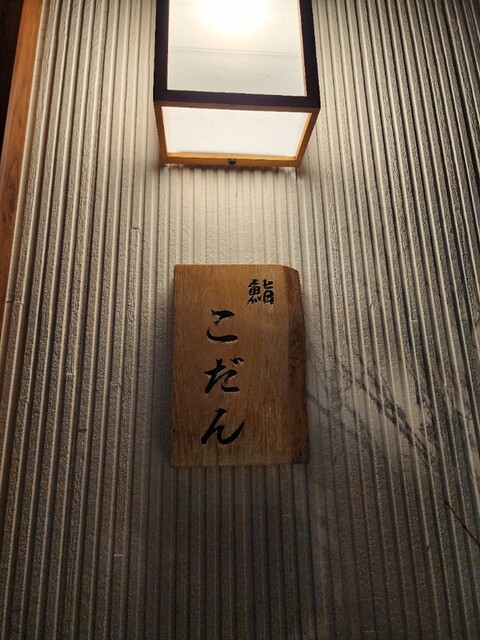 鮨
こだん